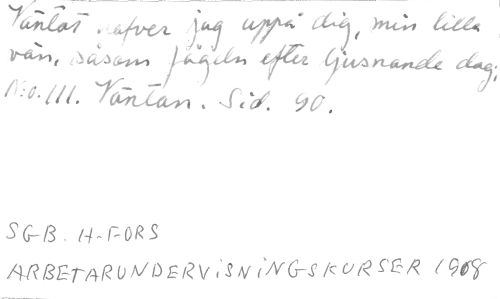 Väntat hafver jag uppå dig, min lilla
vän, såsom fågeln efter ljusnande dag;
N:o. 111. Väntan. Sid. 90.
SGB. H-FORS
ARBETARUNDERVISNINGSKURSER 1908